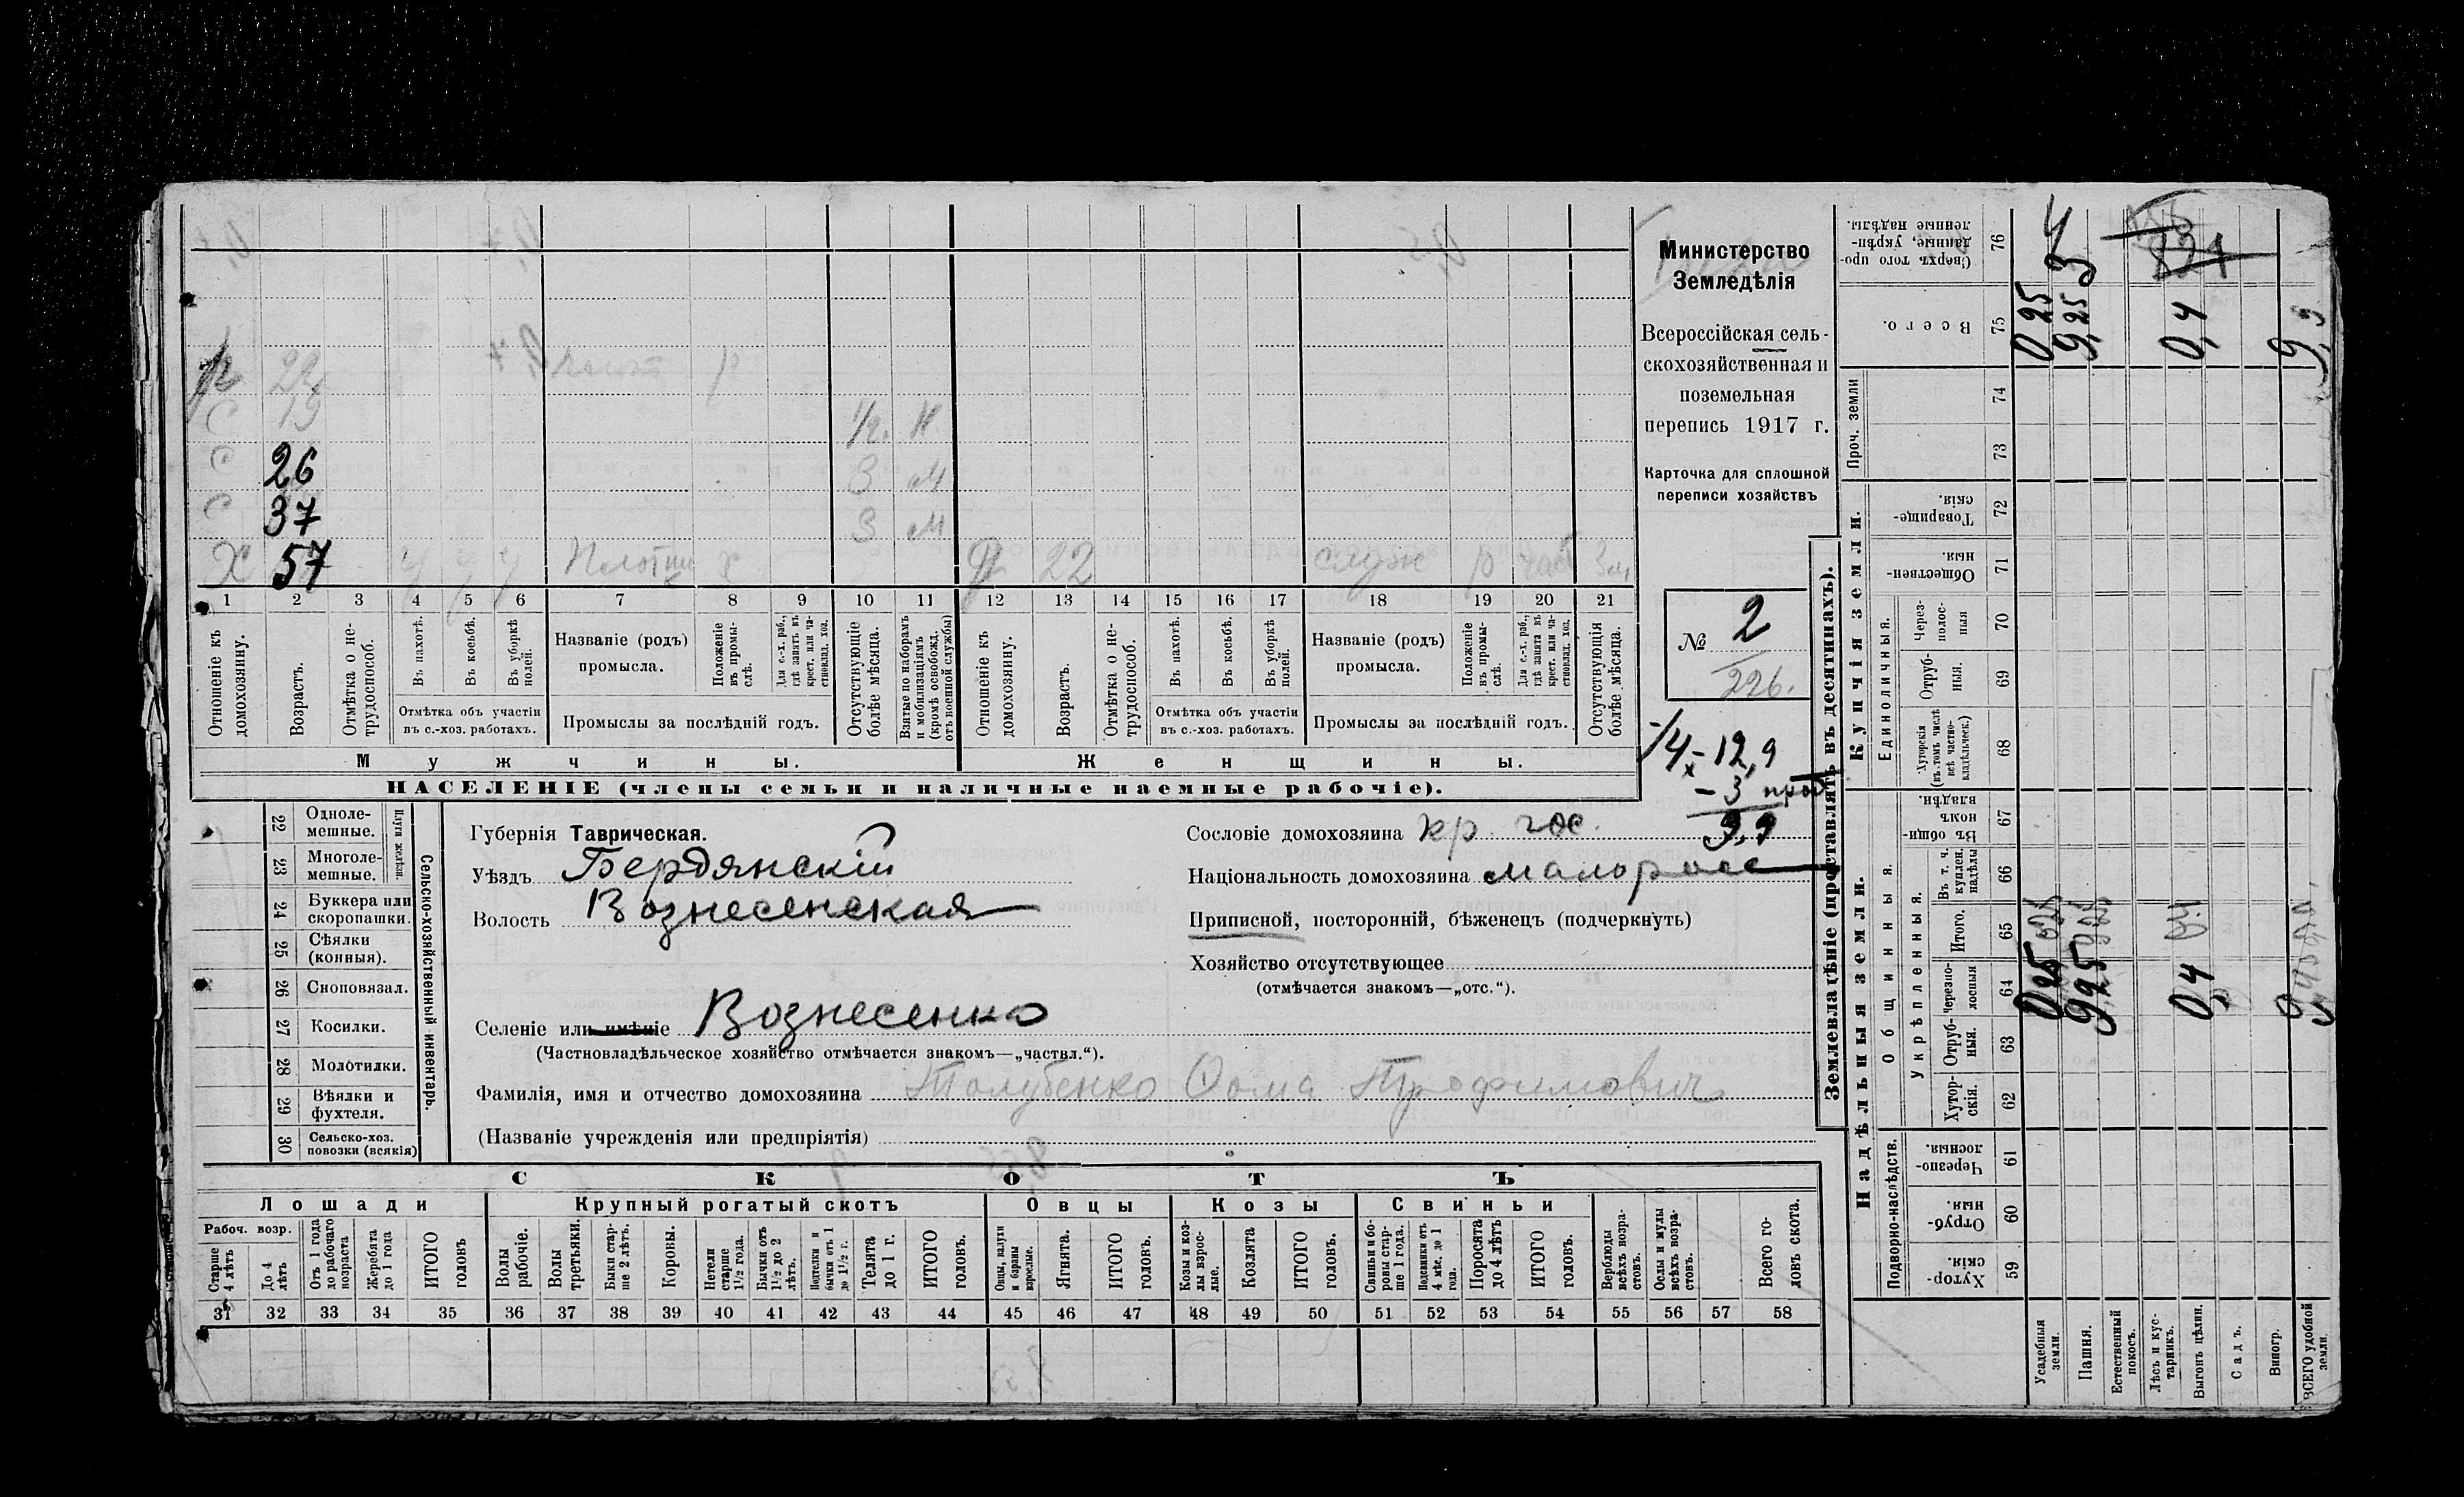 р 22 р
С 19 1/2. Н
С 26 3 М
С 37 3 М
Х 57 Плотни х 22 служ р част 3 м
1 2 3 4 5 6 7 8 9 10 11 12 13 14 15 16 17 18 19 20 21
Отношеніе къ домохозяину.
Возрастъ.
Отмѣтка о нетрудоспособ.
Въ пахотѣ.
Въ косьбѣ.
Въ уборкѣ полей.
Отмѣтка объ участіи въ с.-хоз. работахъ.
Названіе (родъ) промысла.
Положеніе въ промыслѣ.
Для с.-х. раб., гдѣ занятъ въ крест. или частновлад. хоз.
Промыслы за послѣдній годъ.
Отсутствующіе болѣе мѣсяца.
Взятые по наборамъ и мобилизаціямъ (кромѣ освобожд. отъ военной службы)
Отношеніе къ домохозяину.
Возрастъ.
Отмѣтка о нетрудоспособ.
Въ пахотѣ.
Въ косьбѣ.
Въ уборкѣ полей.
Отмѣтка объ участіи въ с.-хоз. работахъ.
Названіе (родъ) промысла.
Положеніе въ промыслѣ.
Для с.-х. раб., гдѣ занята въ крест. или частновлад. хоз.
Промыслы за послѣдній годъ.
Отсутствующія болѣе мѣсяца.
Мужчины. Женщины.
НАСЕЛЕНІЕ (члены семьи и наличные наемные рабочіе).
Министерство
Земледѣлія
Всероссійская сель-
скохозяйственная и
поземельная
перепись 1917 г.
Карточка для сплошной
переписи хозяйствъ
№ 2
226.
12,9
- 3
9,9
22 Одноле-мешные.
23 Многоле-мешные.
Плуги желѣзн.
24 Буккера или скоропашки.
25 Сѣялки (конныя).
26 Сноповязал.
27 Косилки.
28 Молотилки.
29 Вѣялки и фухтеля.
30 Сельско-хоз. повозки (всякія)
Сельско-хозяйственный инвентарь.
Губернія Таврическая.
Уѣздъ Бердянскій
Волость Вознесенская
Селеніе или имѣніе Вознесенка
(Частновладѣльческое хозяйство отмѣчается знакомъ—„частвл.“).
Фамилія, имя и отчество домохозяина Толубенко Фома Трофимович
(Названіе учрежденія или предпріятія)
Сословіе домохозяина кр. гос.
Національность домохозяина малоросс
Приписной, посторонній, бѣженецъ (подчеркнуть)
Хозяйство отсутствующее
(отмѣчается знакомъ—„отс.“).
СКОТЪ
Лошади Крупный рогатый скотъ Овцы Козы Свиньи
Рабоч. возр.
Старше 4 лѣтъ
До 4 лѣтъ
Отъ 1 года до рабочаго возраста
Жеребята до 1 года
ИТОГО головъ
Волы рабочіе.
Волы третьяки.
Быки старше 2 лѣтъ.
Коровы.
Нетели старше 1½ года.
Бычки отъ 1½ до 2 лѣтъ.
Подтелки и бычки отъ 1 до 1½ г.
Телята до 1 г.
ИТОГО головъ.
Овцы, валухи и бараны взрослые.
Ягнята.
ИТОГО головъ.
Козы и козлы взрослые.
Козлята
ИТОГО головъ.
Свиньи и боровы старше 1 года.
Подсвинки отъ 4 мѣс. до 1 года.
Поросята до 4 лѣтъ
ИТОГО головъ.
Верблюды всѣхъ возрастовъ.
Ослы и мулы всѣхъ возрастовъ.
Всего головъ скота.
31 32 33 34 35 36 37 38 39 40 41 42 43 44 45 46 47 48 49 50 51 52 53 54 55 56 57 58
Землевладѣніе (проставлять въ десятинахъ).
Надѣльныя земли. Купчія земли.
Подворно-наслѣдств. Общинныя. Укрѣпленныя. Единоличныя. Проч. земли
Хуторскія 59
Отрубныя. 60
Черезполосныя. 61
Хуторскія. 62
Отрубныя. 63
Черезполосныя 64
Итого. 65
Въ т. ч. куплен. надѣлы 66
Въ общин. владѣн. 67
Хуторскія (въ томъ числѣ всѣ частновладѣльческ.) 68
Отрубныя. 69
Черезполосныя 70
Общественныя. 71
Товарищескія. 72
73
74
Всего. 75
Сверхъ того проданные, укрѣпленные надѣлы. 76
Усадебныя земли. 0,25 0,25
Пашня. 9,25 9,25 3
Естественный покосъ.
Лѣсъ и кустарникъ.
Выгонъ цѣлин. 0,4 0,4
Садъ.
Виногр.
ВСЕГО удобной земли. 9,9